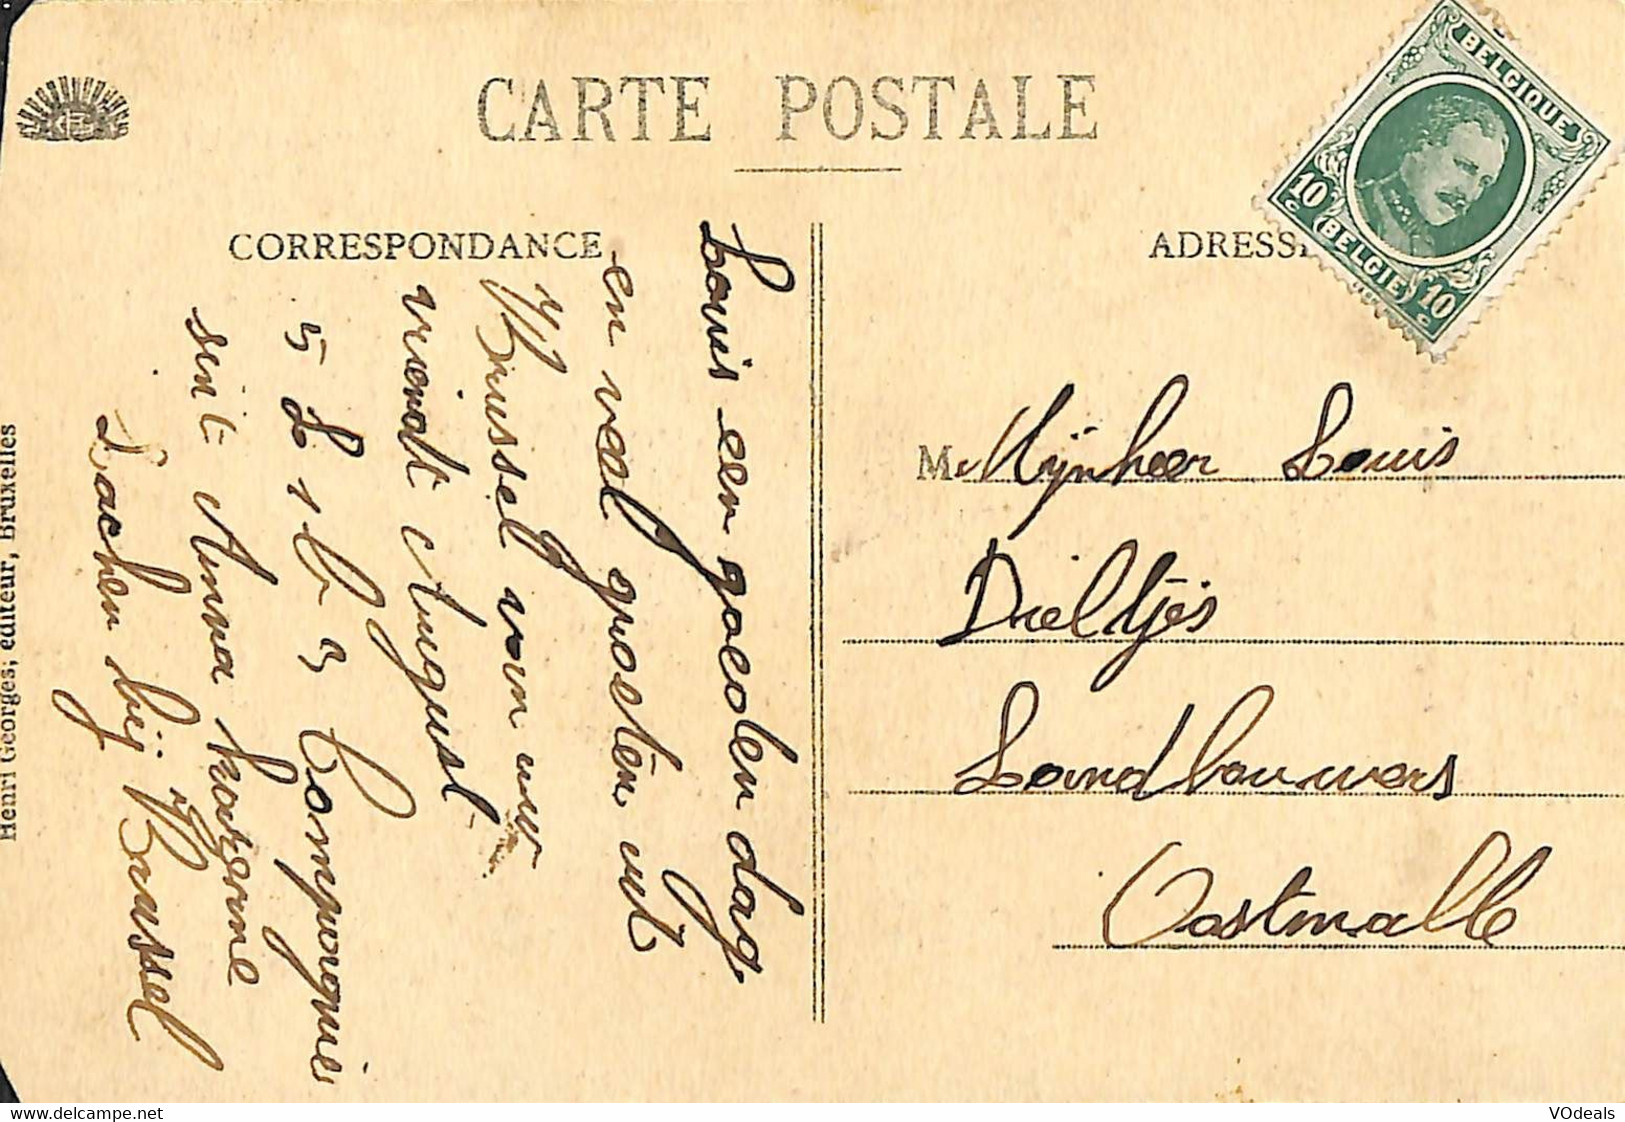 CARTE POSTALE
CORRESPONDANCE
ADRESS
BELGIQUE
10 c
BELGIE
10 c
Louis een goeden dag
en veel groeten uit
Brussel van uw
vriend August
5 L 1 b 3 Compagnie
sint Anna kazerne
Laeken bij Brussel
M Mijnheer Louis
Dieltjes
Landbouwers
Oostmalle
Henri Georges, éditeur, Bruxelles
delcampe.net
VOdeals